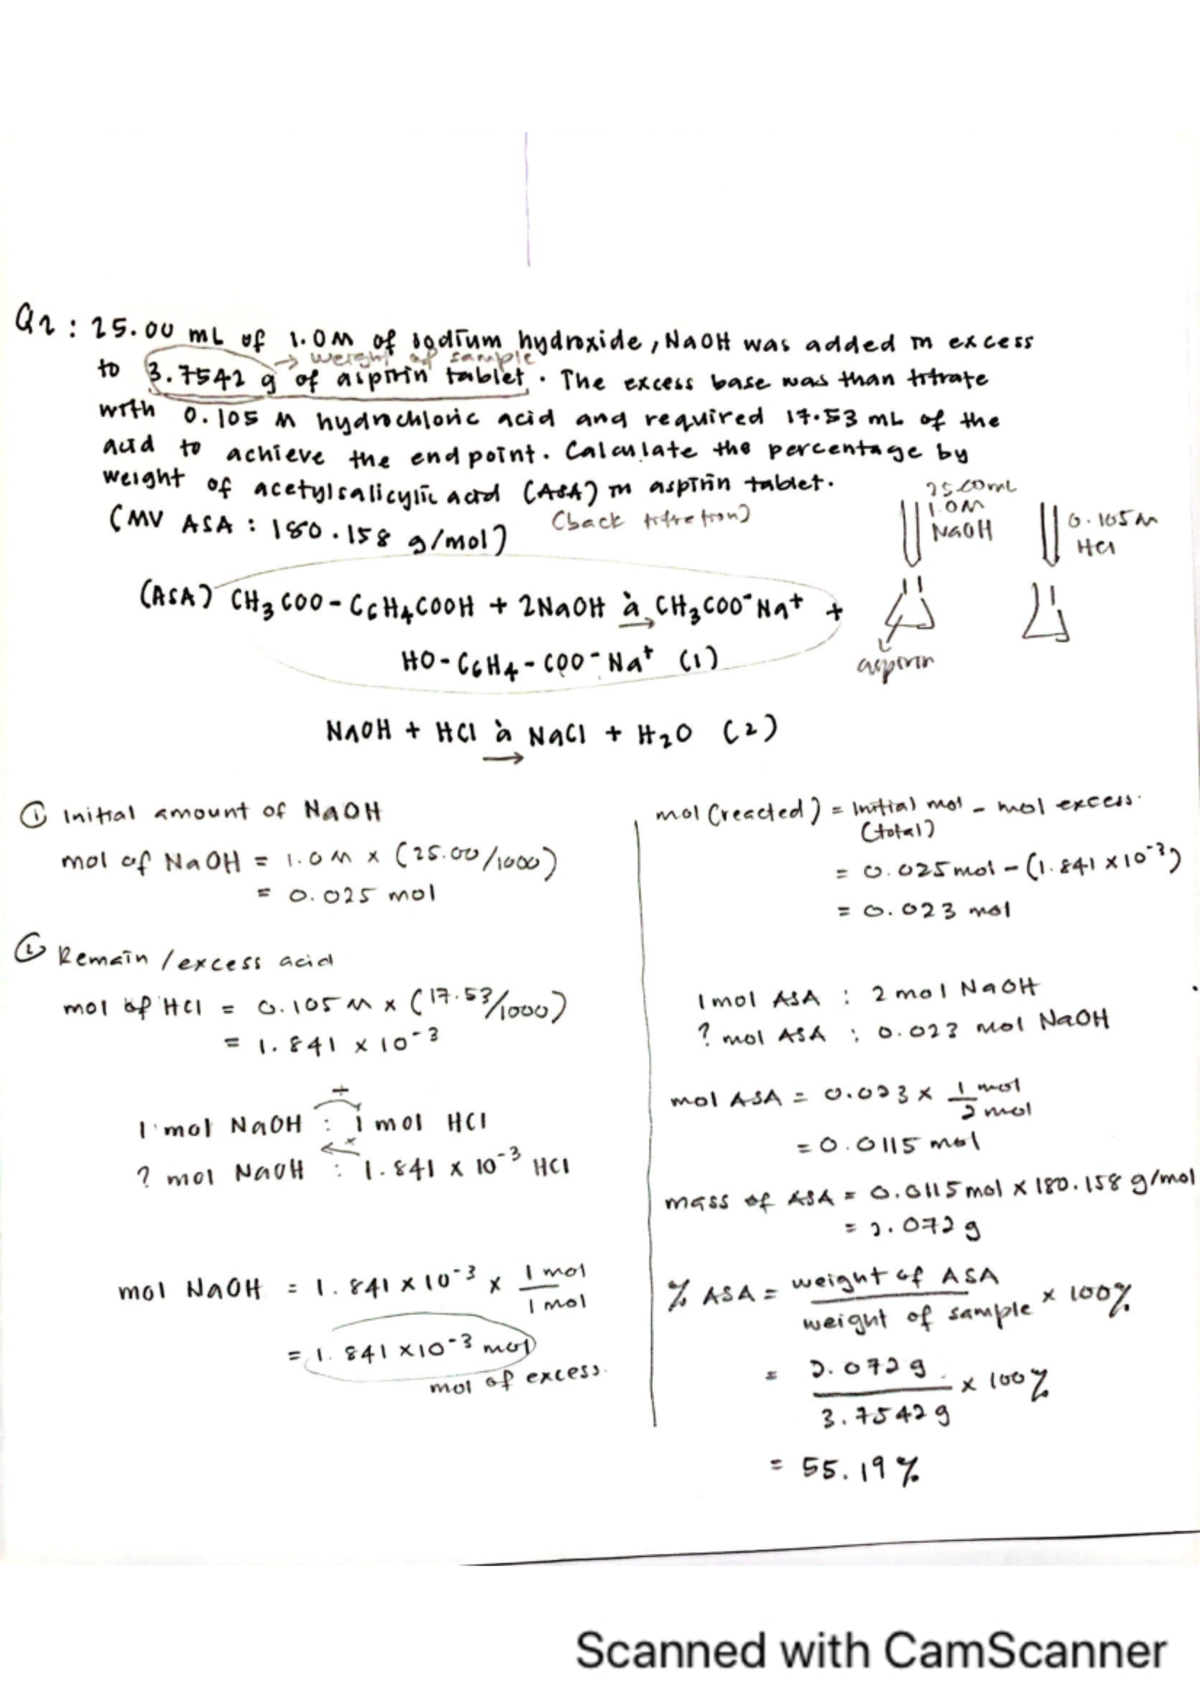 Q2 : 25.00 mL of 1.0M of sodium hydroxide, NaOH was added in excess
→ weight of sample
to 3.7542 g of aspirin tablet. The excess base was than titrate
with 0.105 M hydrochloric acid and required 17.53 mL of the
acid to achieve the endpoint. Calculate the percentage by
weight of acetylsalicylic acid (ASA) in aspirin tablet.
(MV ASA : 180.158 g/mol)
(back titration)
25.00mL
1.0M
NaOH
0.105M
HCl
aspirin
(ASA) CH3COO-C6H4COOH + 2NaOH à → CH3COO⁻Na⁺ +
HO-C6H4-COO⁻Na⁺ (1)
NaOH + HCl à → NaCl + H2O (2)
① Initial amount of NaOH
mol of NaOH = 1.0M x (25.00/1000)
= 0.025 mol
② Remain / excess acid
mol of HCl = 0.105M x (17.53/1000)
= 1.841 x 10⁻³
÷
1 mol NaOH : 1 mol HCl
x
? mol NaOH : 1.841 x 10⁻³ HCl
mol NaOH = 1.841 x 10⁻³ x 1 mol
1 mol
= 1.841 x10⁻³ mol
mol of excess.
mol (reacted) = Initial mol - mol excess.
(total)
= 0.025mol - (1.841 x10⁻³)
= 0.023 mol
1mol ASA : 2 mol NaOH
? mol ASA : 0.023 mol NaOH
mol ASA = 0.023 x 1 mol
2 mol
= 0.0115 mol
mass of ASA = 0.0115mol x 180.158 g/mol
= 2.072 g
% ASA = weight of ASA x 100%
weight of sample
= 2.072 g x 100%
3.7542 g
= 55.19 %
Scanned with CamScanner